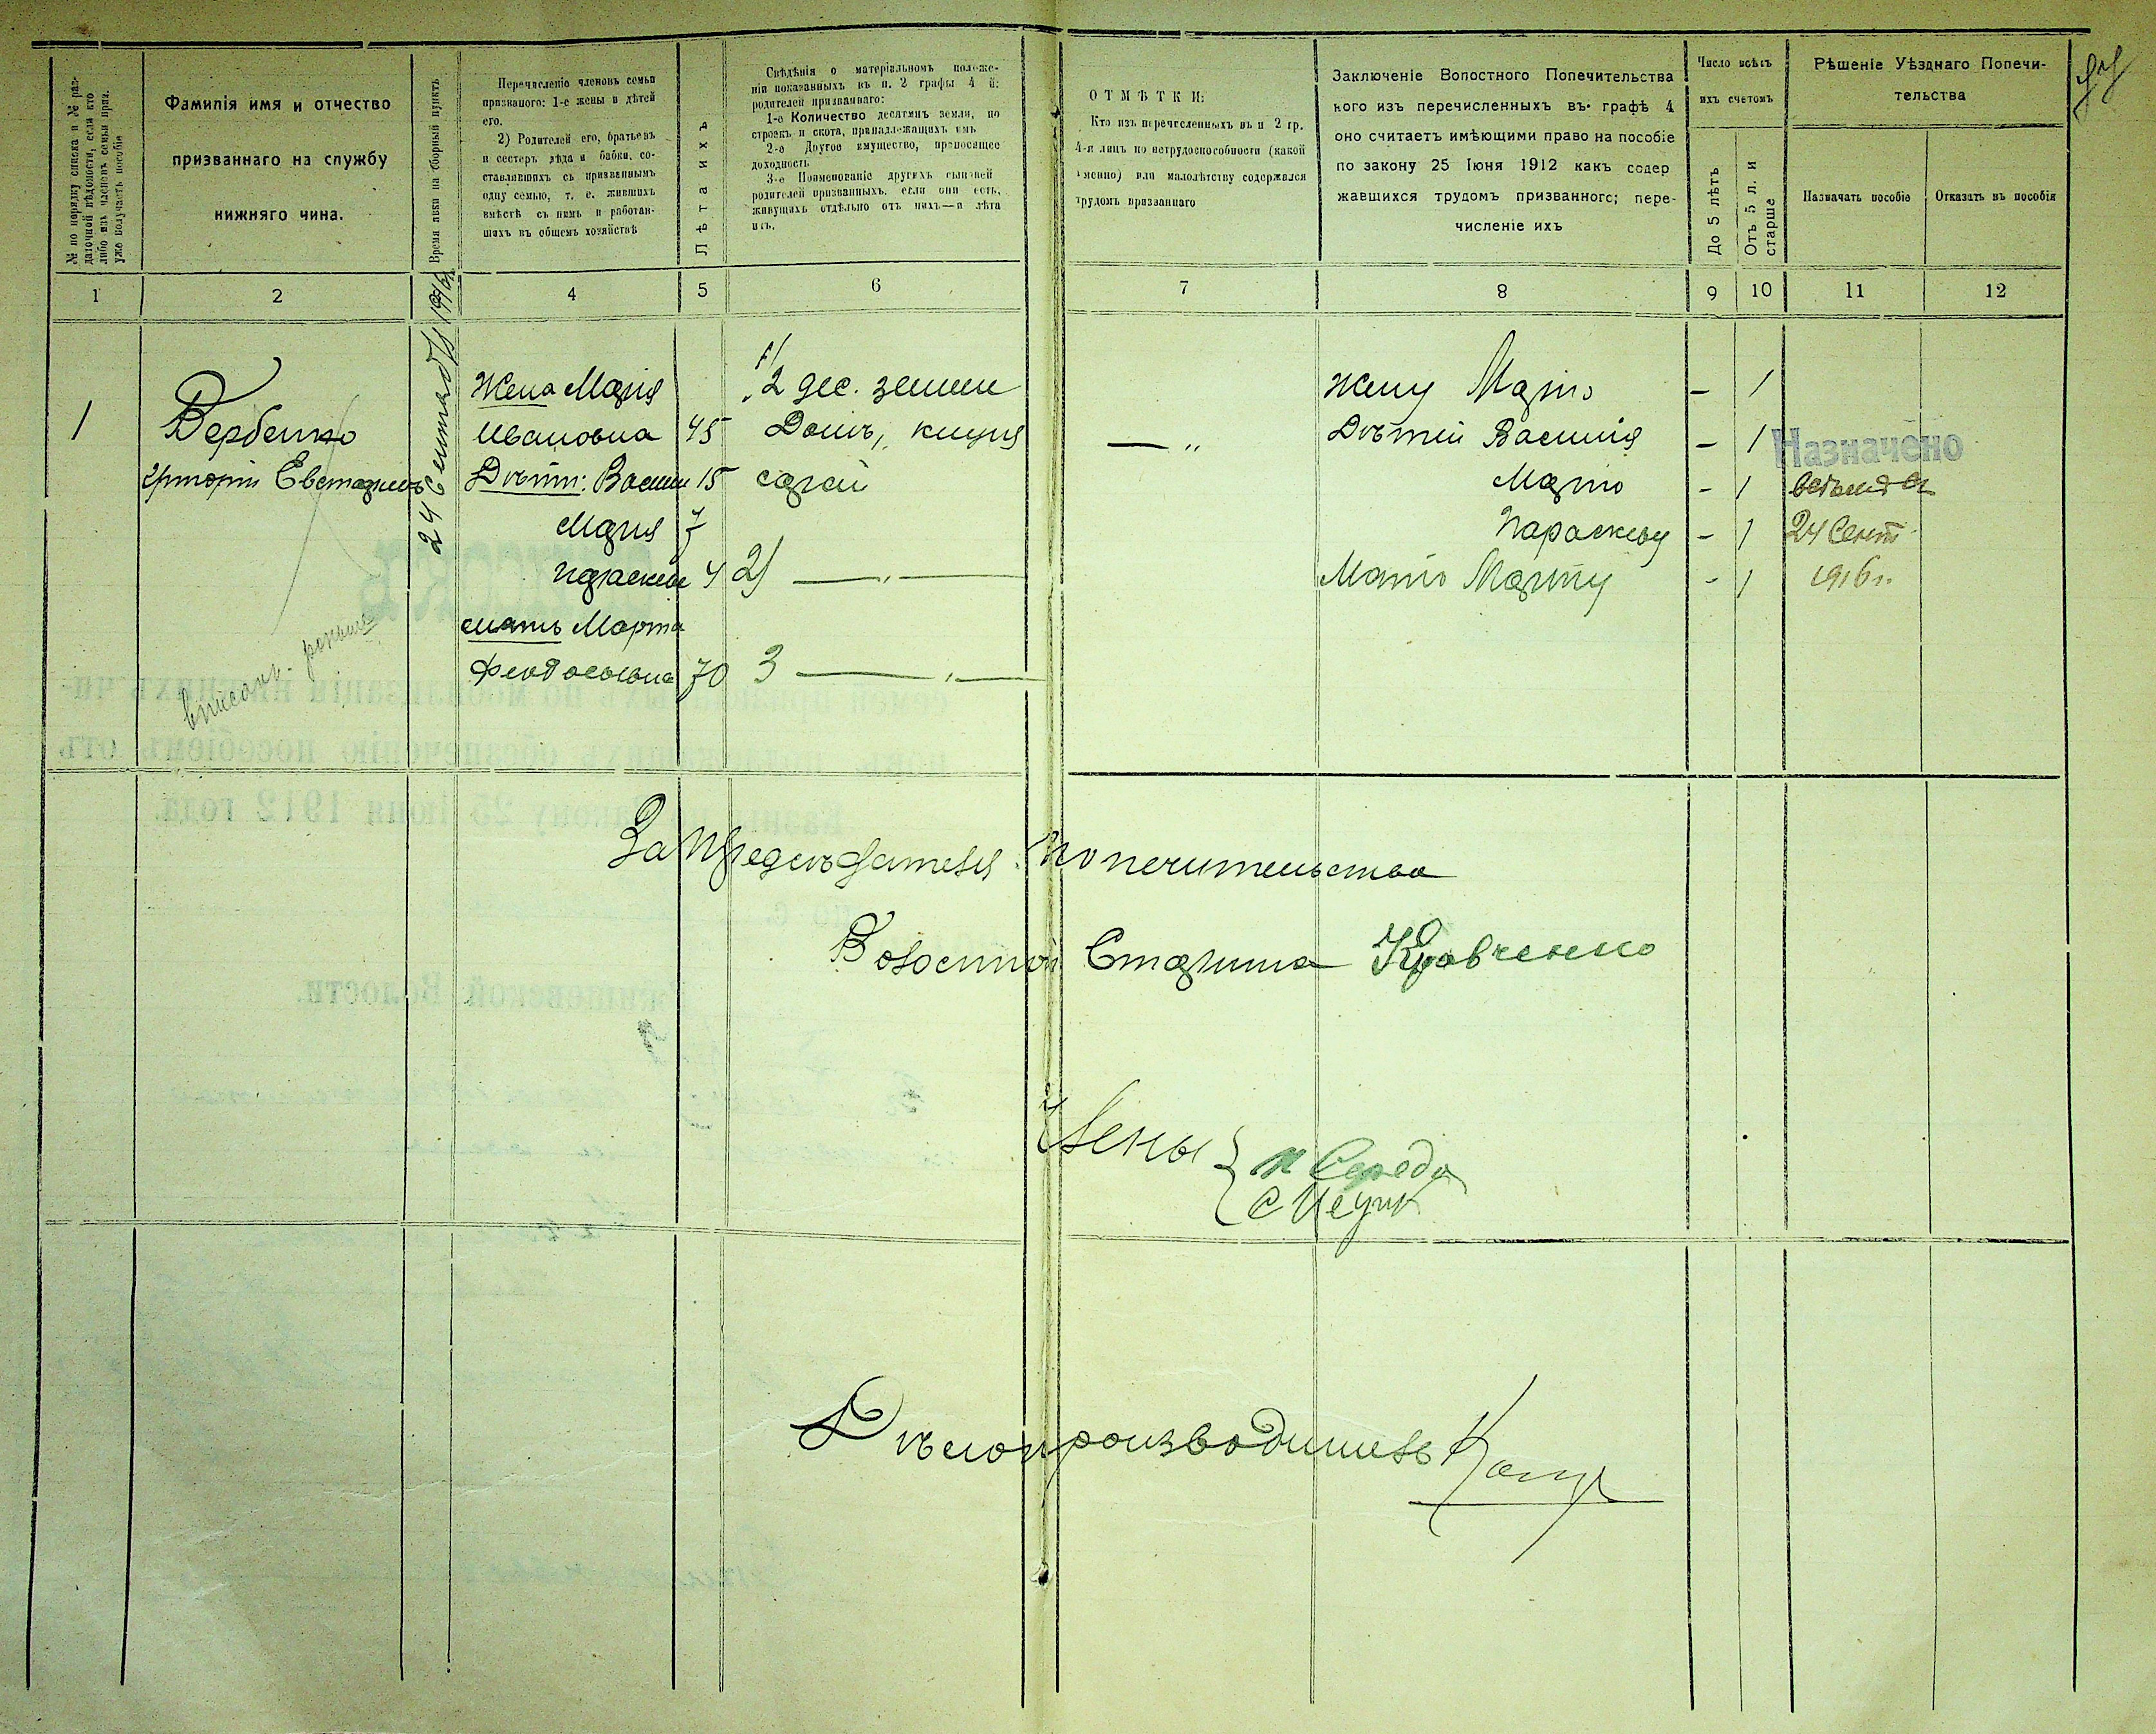 № по порядку списка и № раз-
даточной вѣдомости, если кто
либо изъ членовъ семьи приз.
уже получаетъ пособіе
Фамилія имя и отчество
призваннаго на службу
нижняго чина.
Время явки на сборный пунктъ
Перечисленіе членовъ семьи
призваннго: 1-е жены и дѣтей
его.
2) Родителей его, братьевъ
и сестеръ дѣда и бабки, со-
ставлявшихъ съ призваннымъ
одну семью, т. е. жившихъ
вмѣстѣ съ нимъ и работав-
шихъ въ общемъ хозяйствѣ
Лѣта ихъ
Свѣдѣнія о матеріальномъ положе-
ніи показанныхъ въ п. 2 графы 4 й:
родителей призваннаго:
1-е Количество десятинъ земли, по
строекъ и скота, принадлежащихъ имъ
2-е Другое имущество, приносящее
доходность
3-е Поименованіе другихъ сыновей
родителей призванныхъ, если они есть,
живущихъ отдѣльно отъ нихъ—и лѣта
ихъ.
ОТМѢТКИ:
Кто изъ перечисленныхъ въ п 2 гр.
4-я лицъ по нетрудоспособности (какой
именно) или малолѣтству содержался
трудомъ призваннаго
Заключеніе Волостного Попечительства
кого изъ перечисленныхъ въ графѣ 4
оно считаетъ имѣющими право на пособіе
по закону 25 Іюня 1912 какъ содер
жавшихся трудомъ призванного; пере-
численіе ихъ
Число всѣхъ
ихъ счетомъ
До 5 лѣтъ
Отъ 5 л. и
старше
Рѣшеніе Уѣзднаго Попечи-
тельства
Назначать пособіе
Отказать въ пособіи
1 2 4 5 6 7 8 9 10 11 12
1
Вербенко
Григорій Евстафіевъ
24 Сентября 1916
вписанъ раньше
Жена Марія
Ивановна 45
Дѣти: Василій 15
Марія 7
Параскева 4
мать Марта
Феодосьевна 70
1/
2 дес. земли
Домъ, клуня
сарай
2) — „ —
3 — „ —
— „
Жену Марію - 1
Дѣтей Василія - 1
Марію - 1
Параскеву - 1
Мать Марту - 1
Назначено
24 Сент
1916 г.
За Предсѣдателя Попечительства
Волостной Старшина Кравченко
Члены
Н Середа
Дѣлопроизводитель